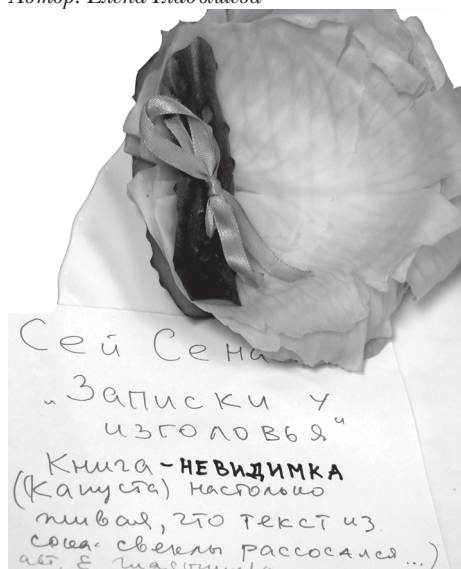 Автор: Елена
Сей Сена
„Записки у
изголовья“
Книга-НЕВИДИМКА
(Капуста) настолько
живая, что текст из
сока свеклы рассосался...)
авт. Е